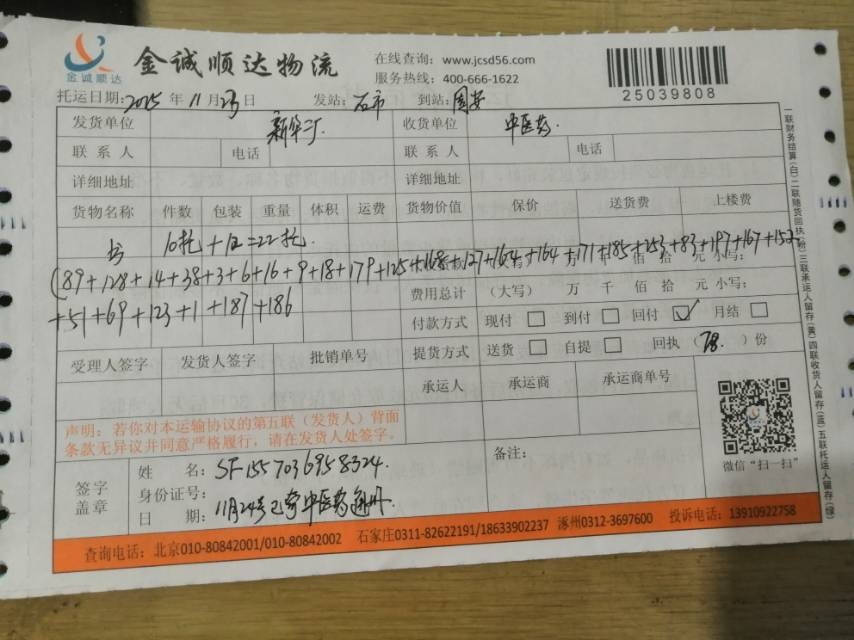 金诚顺达
金诚顺达物流
在线查询：www.jcsd56.com
服务热线：400-666-1622
25039808
托运日期：2025 年 11 月 23 日 发站：石市 到站：固安
发货单位 新华厂 收货单位 中医药.
联系人 电话 联系人 电话
详细地址 详细地址
货物名称 件数 包装 重量 体积 运费 货物价值 保价 送货费 上楼费
书 10托+12=22托.
(89+128+14+38+3+6+16+9+18+179+125+168+127+164+164+171+185+253+83+197+167+153
万 仟 佰 拾 元 小写：
+51+69+123+1+187+186
费用总计 （大写） 万 千 佰 拾 元 小写：
付款方式 现付 □ 到付 □ 回付 ☑ 月结 □
受理人签字 发货人签字 批销单号 提货方式 送货 □ 自提 □ 回执（78.）份
承运人 承运商 承运商单号
声明：若你对本运输协议的第五联（发货人）背面
条款无异议并同意严格履行，请在发货人处签字。
微信“扫一扫”
签字
盖章
姓 名：SF1557036958324.
身份证号：
日 期：11月24号已寄中医药
备注：
查询电话：北京010-80842001/010-80842002 石家庄0311-82622191/18633902237 涿州0312-3697600 投诉电话：13910922758
一联财务结算(白) 二联随货回执(粉) 三联承运人留存(黄) 四联收货人留存(蓝) 五联托运人留存(绿)